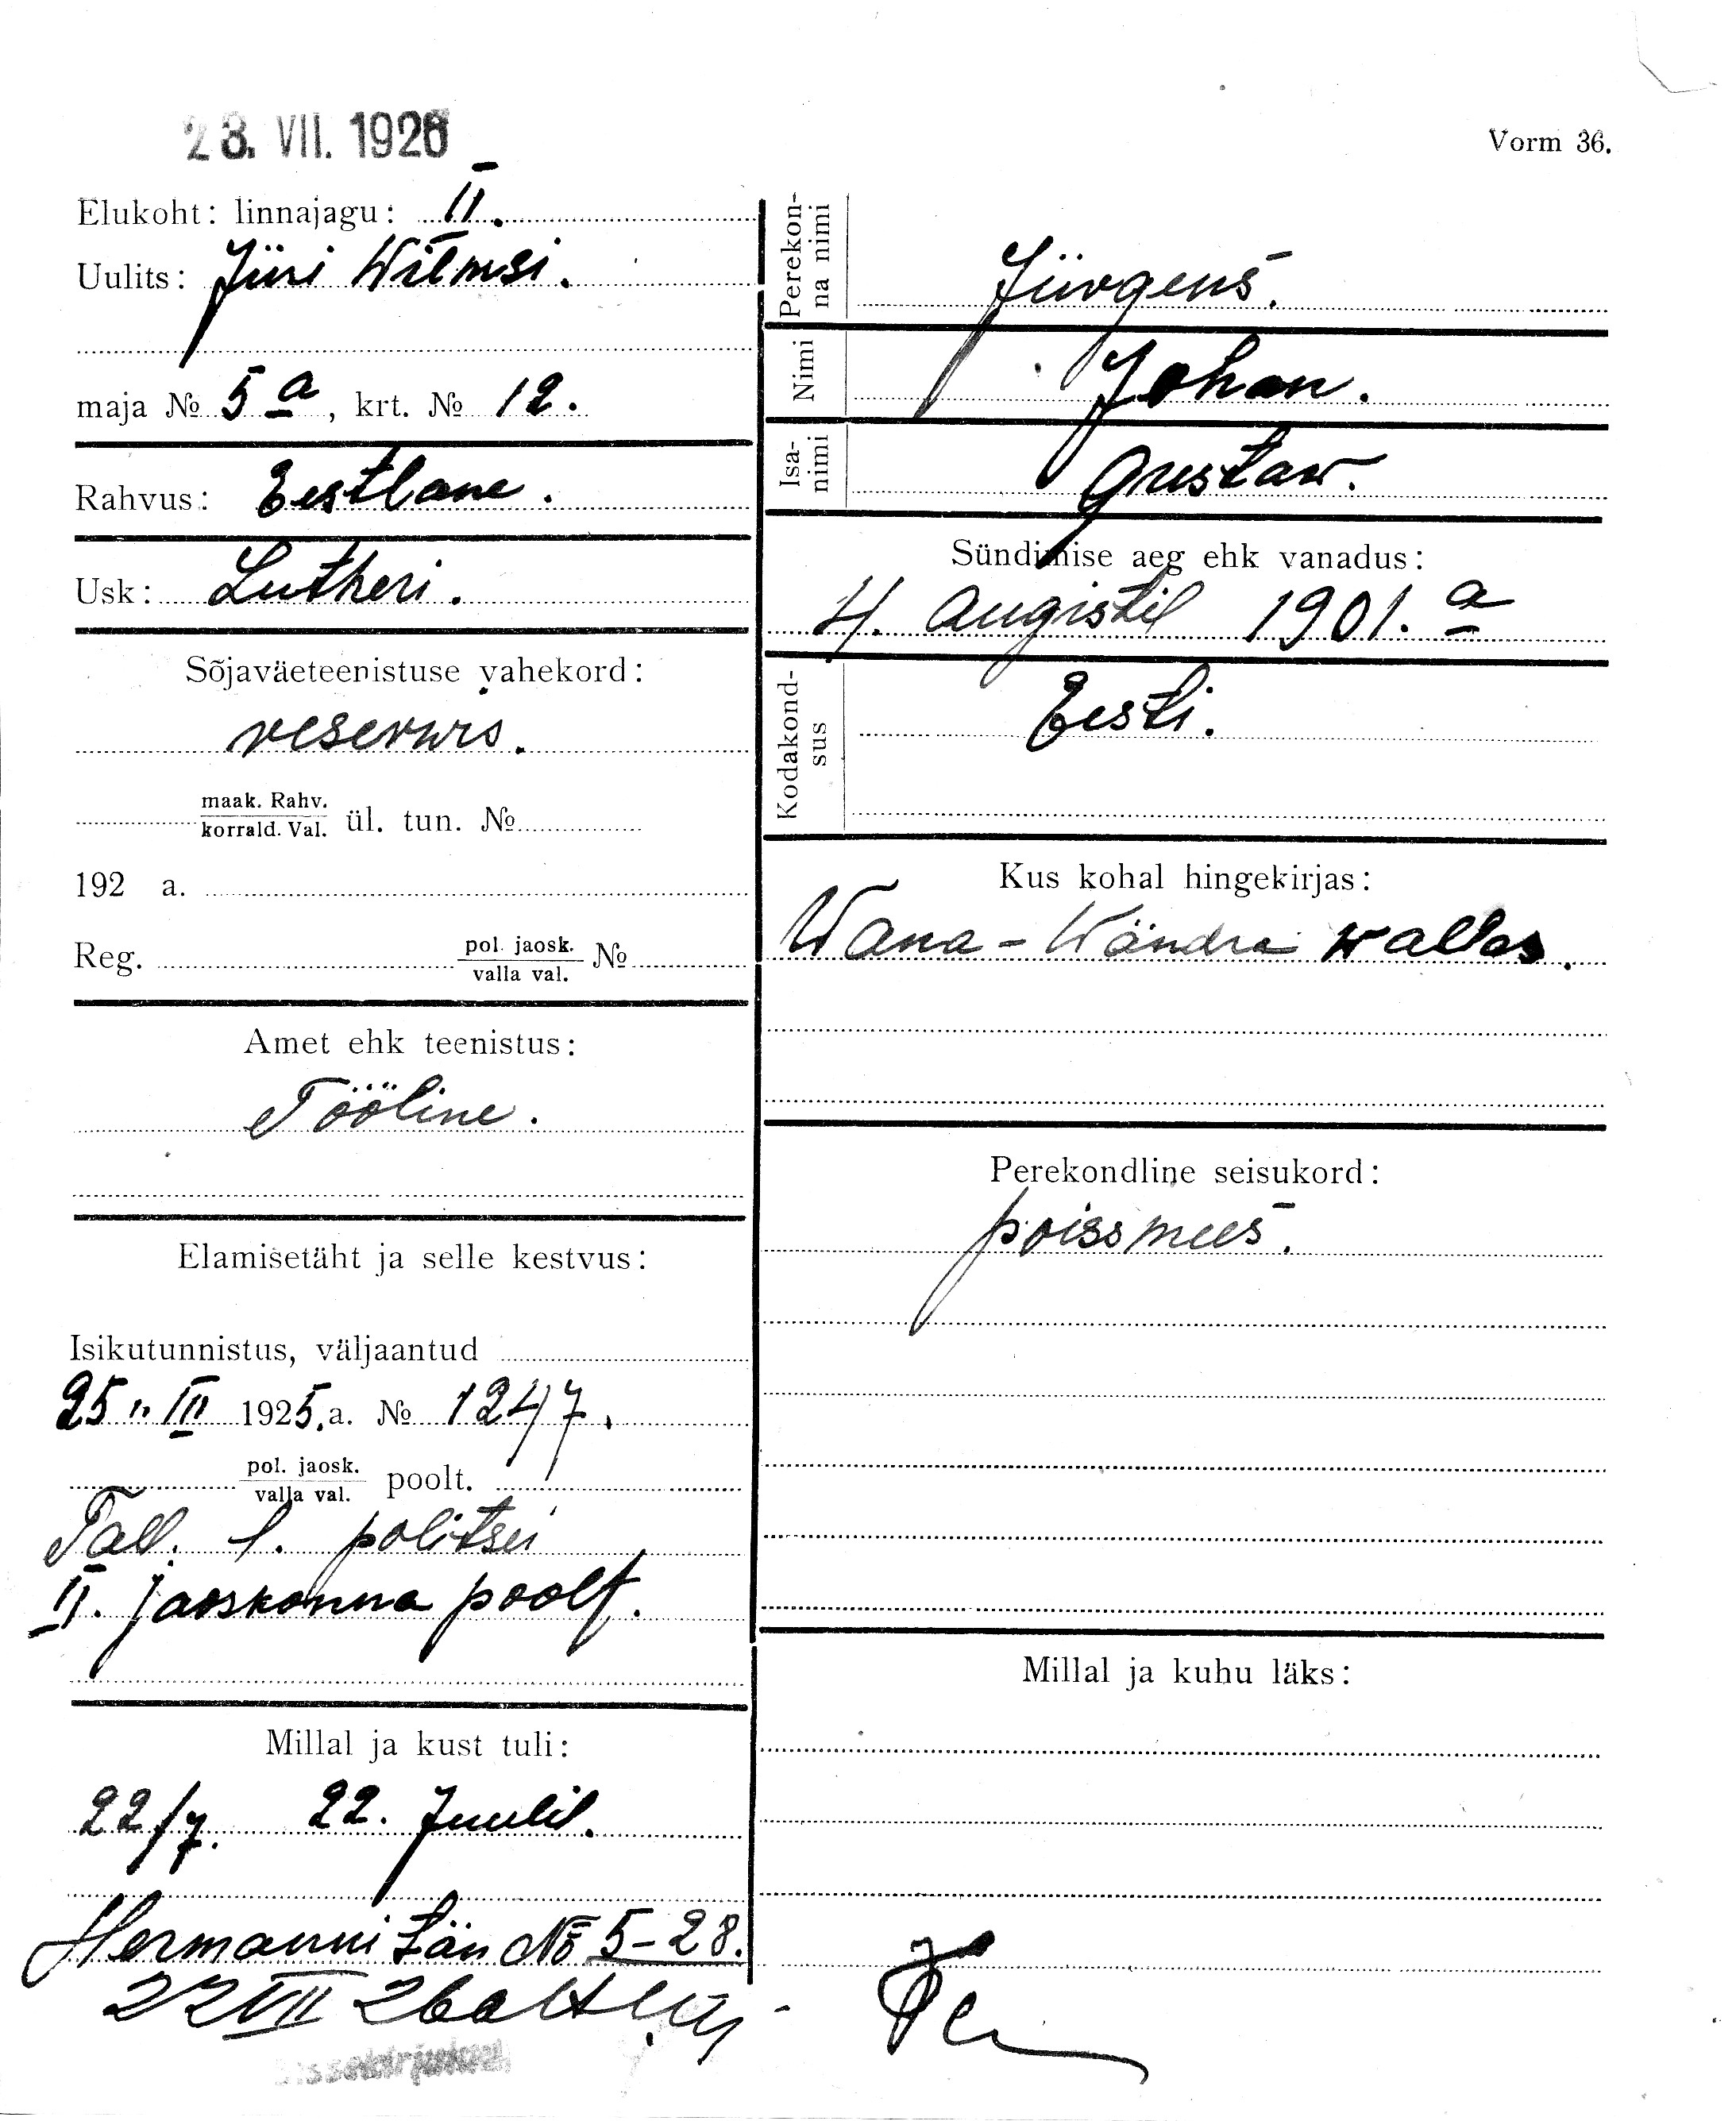 23. VII. 1926
Vorm 36.
Elukoht: linnajagu: II.
Uulits: Jüri Wilmsi.
maja № 5 a, krt. № 12.
Rahvus: Eestlane.
Usk: Lutheri.
Sõjaväeteenistuse vahekord:
reservis.
maak. Rahv.
korrald. Val. ül. tun. №
192 a.
Reg. pol. jaosk.
valla val. №
Amet ehk teenistus:
Tööline.
Elamisetäht ja selle kestvus:
Isikutunnistus, väljaantud
25 " III 1925.a. № 1247.
pol. jaosk.
valla val. poolt.
Tall. l. politsei
II. jaoskonna poolt.
Millal ja kust tuli:
22/7. 22. Juulil.
Hermanni tän № 5-28.
22 VII 26a
Perekon-
na nimi Jürgens.
Nimi Johan.
Isa-
nimi Gustaw.
Sündimise aeg ehk vanadus:
4. Augistil 1901. a
Kodakond-
sus Eesti.
Kus kohal hingekirjas:
Wana-Wändra wallas.
Perekondline seisukord:
poissmees.
Millal ja kuhu läks: